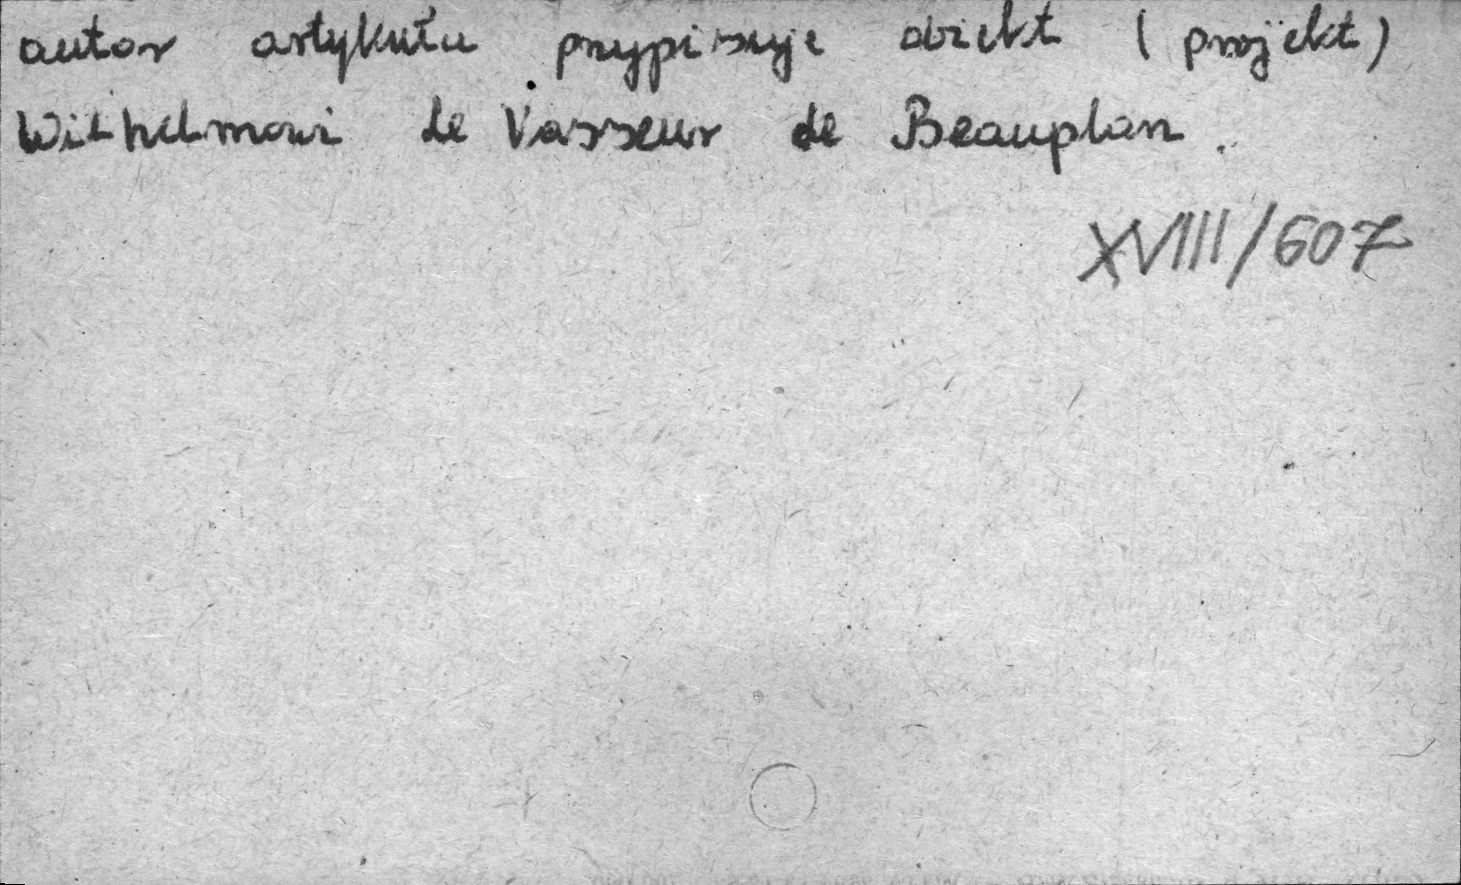 autor artykułu przypisuje obiekt (projekt)
Wilhelmowi le Vasseur de Beauplan.
XVIII/607